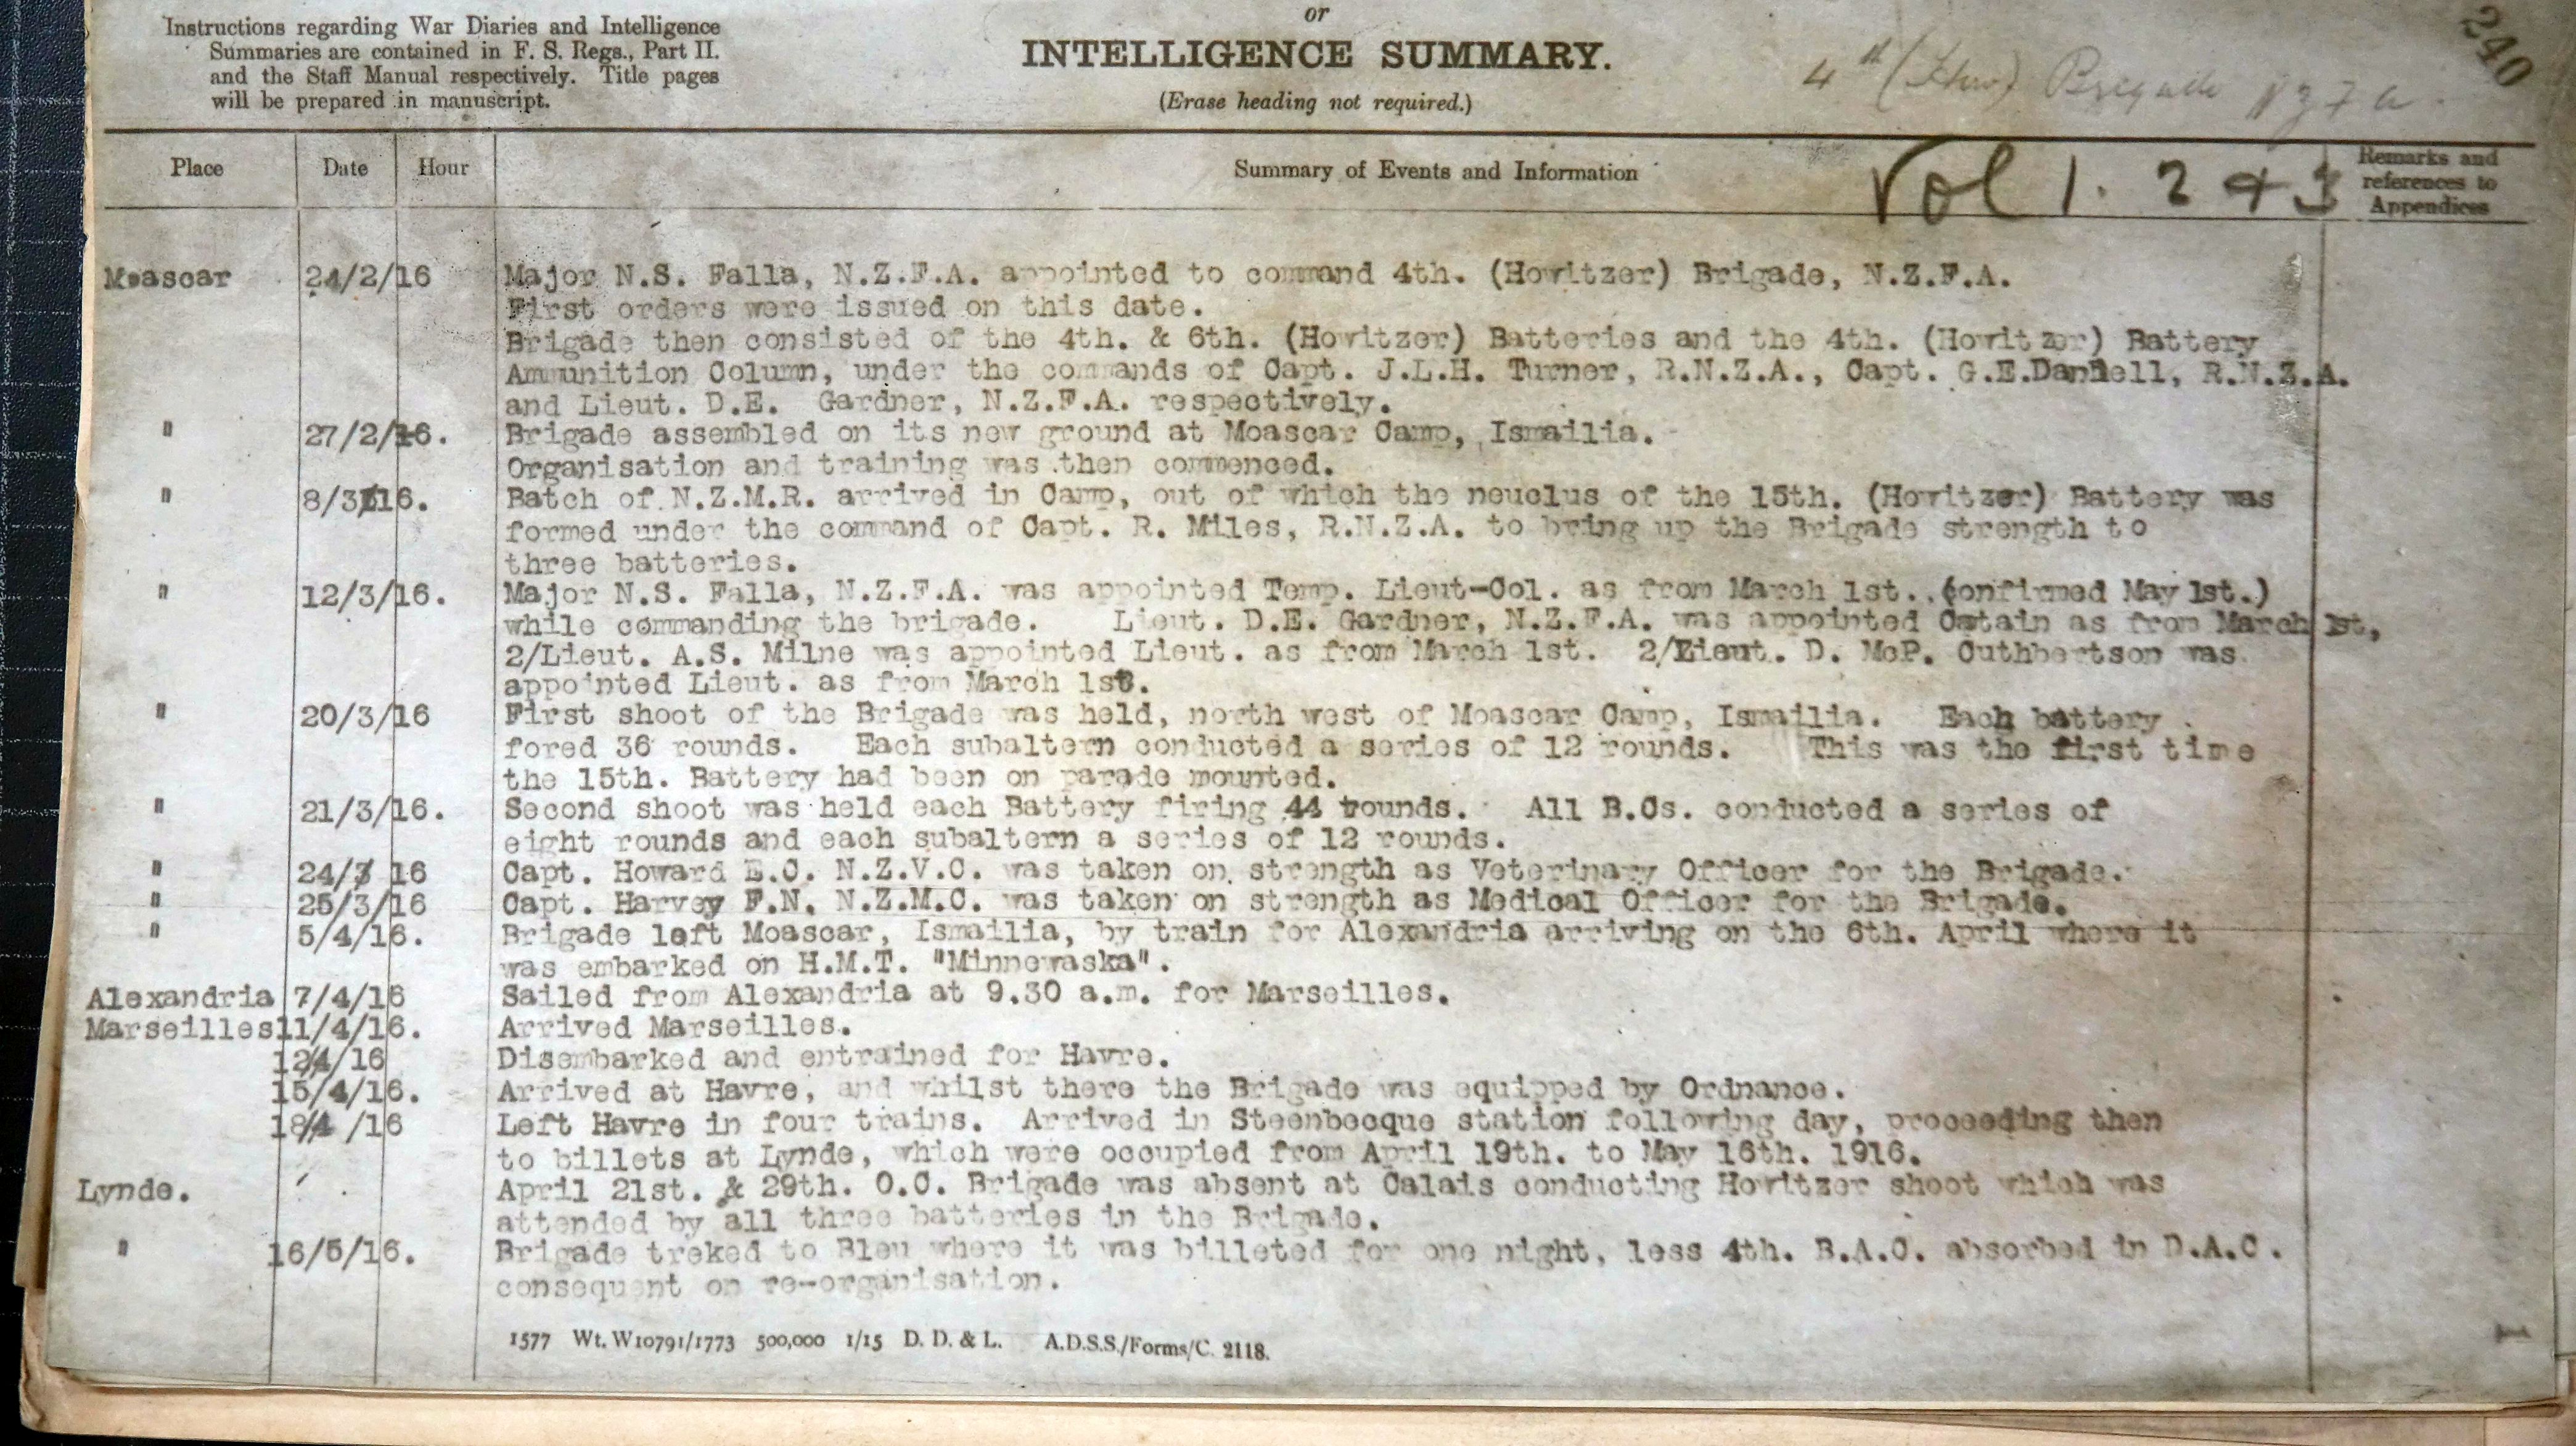 or
Instructions regarding War Diaries and Intelligence
Summaries are contained in F. S. Regs., Part II.
and the Staff Manual respectively. Title pages
will be prepared in manuscript.
INTELLIGENCE SUMMARY.
(Erase heading not required.)
4th (How) Brigade NZFA.
240
Place Date Hour Summary of Events and Information Remarks and
references to
Appendices
Vol 1. 2 & 3
Moascar 24/2/16 Major N.S. Falla, N.Z.F.A. appointed to command 4th. (Howitzer) Brigade, N.Z.F.A.
First orders were issued on this date.
Brigade then consisted of the 4th. & 6th. (Howitzer) Batteries and the 4th. (Howitzer) Battery
Ammunition Column, under the commands of Capt. J.L.H. Turner, R.N.Z.A., Capt. G.E.Daniell, R.N.Z.A.
and Lieut. D.E. Gardner, N.Z.F.A. respectively.
" 27/2/16. Brigade assembled on its new ground at Moascar Camp, Ismailia.
Organisation and training was then commenced.
" 8/3/16. Batch of N.Z.M.R. arrived in Camp, out of which the neuclus of the 15th. (Howitzer) Battery was
formed under the command of Capt. R. Miles, R.N.Z.A. to bring up the Brigade strength to
three batteries.
" 12/3/16. Major N.S. Falla, N.Z.F.A. was appointed Temp. Lieut-Col. as from March 1st. (confirmed May 1st.)
while commanding the brigade. Lieut. D.E. Gardner, N.Z.F.A. was appointed Catain as from March 1st,
2/Lieut. A.S. Milne was appointed Lieut. as from March 1st. 2/Lieut. D. McP. Cuthbertson was
appointed Lieut. as from March 1st.
" 20/3/16 First shoot of the Brigade was held, north west of Moascar Camp, Ismailia. Each battery
fored 36 rounds. Each subaltern conducted a series of 12 rounds. This was the first time
the 15th. Battery had been on parade mounted.
" 21/3/16. Second shoot was held each Battery firing 44 rounds. All B.Cs. conducted a series of
eight rounds and each subaltern a series of 12 rounds.
" 24/3 16 Capt. Howard E.C. N.Z.V.C. was taken on strength as Veterinary Officer for the Brigade.
" 25/3/16 Capt. Harvey F.N. N.Z.M.C. was taken on strength as Medical Officer for the Brigade.
" 5/4/16. Brigade left Moascar, Ismailia, by train for Alexandria arriving on the 6th. April where it
was embarked on H.M.T. "Minnewaska".
Alexandria 7/4/16 Sailed from Alexandria at 9.30 a.m. for Marseilles.
Marseilles 11/4/16. Arrived Marseilles.
12/4/16 Disembarked and entrained for Havre.
15/4/16. Arrived at Havre, and whilst there the Brigade was equipped by Ordnance.
18/4 /16 Left Havre in four trains. Arrived in Steenbecque station following day, proceeding then
to billets at Lynde, which were occupied from April 19th. to May 16th. 1916.
Lynde. April 21st. & 29th. O.C. Brigade was absent at Calais conducting Howitzer shoot which was
attended by all three batteries in the Brigade.
" 16/5/16. Brigade treked to Bleu where it was billeted for one night, less 4th. B.A.C. absorbed in D.A.C.
consequent on re-organisation.
1577 Wt. W10791/1773 500,000 1/15 D. D. & L. A.D.S.S./Forms/C. 2118.